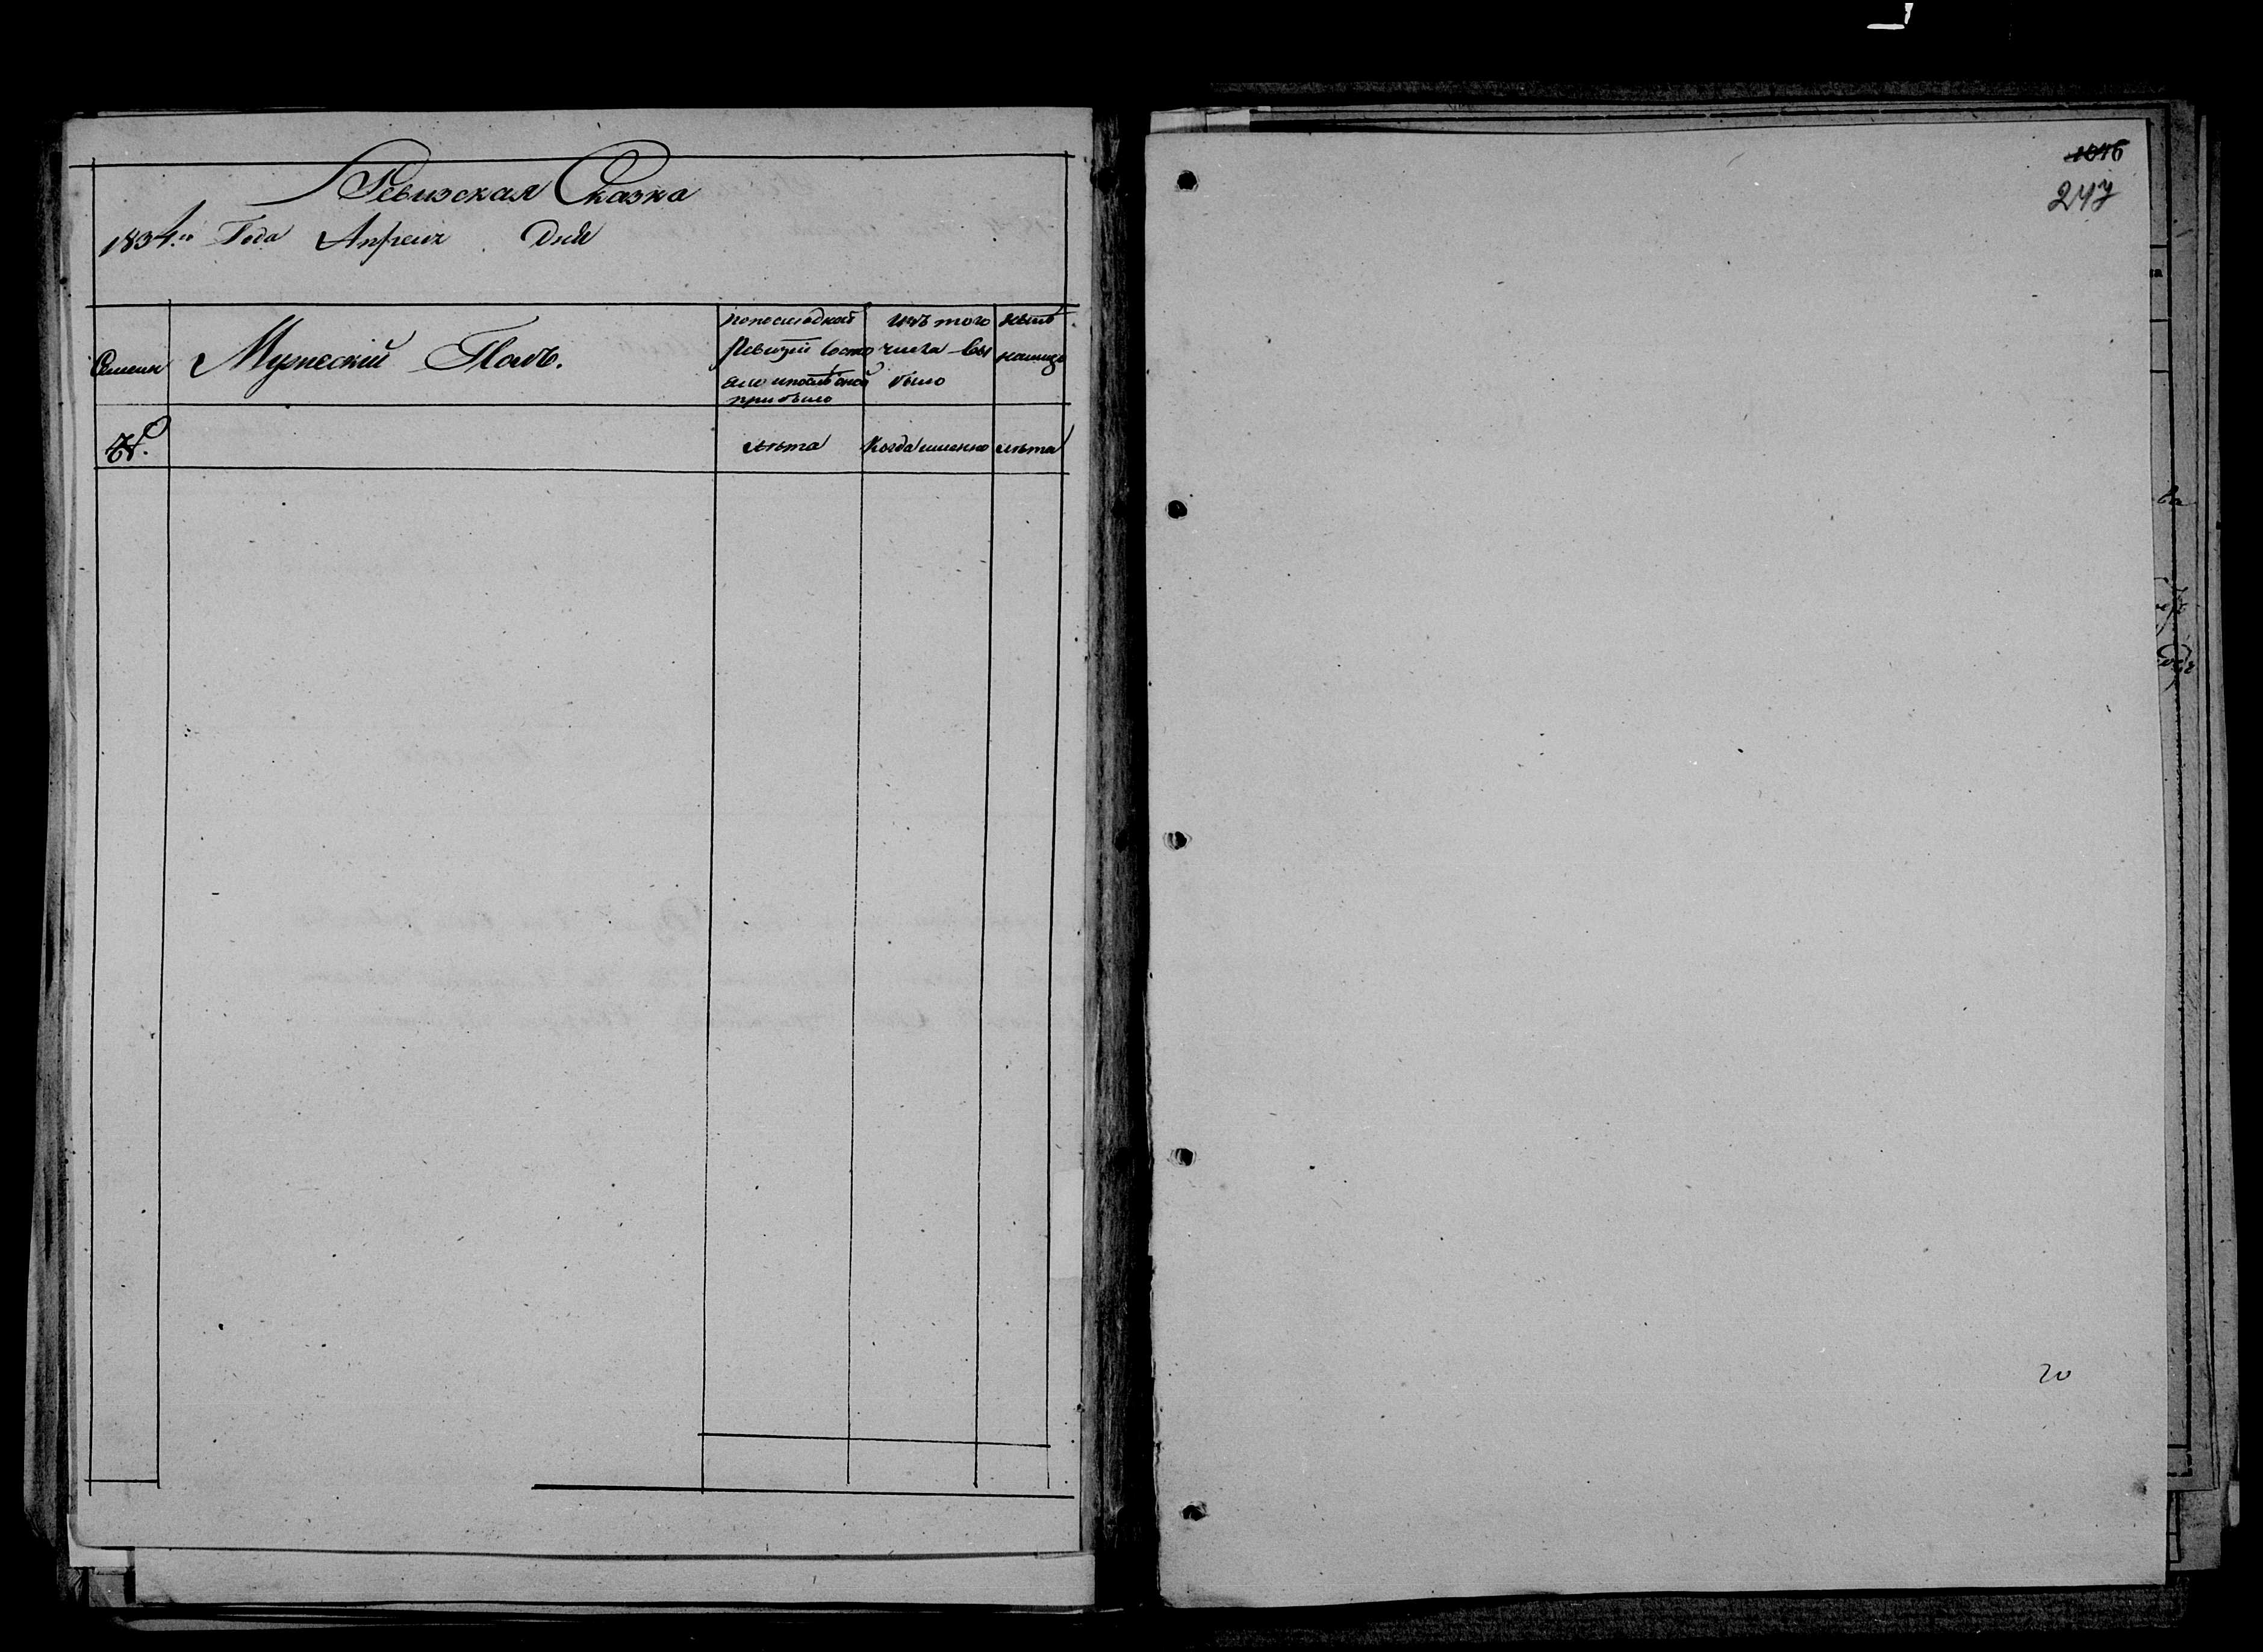 Ревизская Сказка
1834.го Года Апреля Дня
Семьи
Мужеский Полъ.
по последней
Ревизій состо
яло и после оной
прибыло
изъ того
числа вы
было
ныне
налицо
№.
лета
Когда именно
лета
1046
247
20